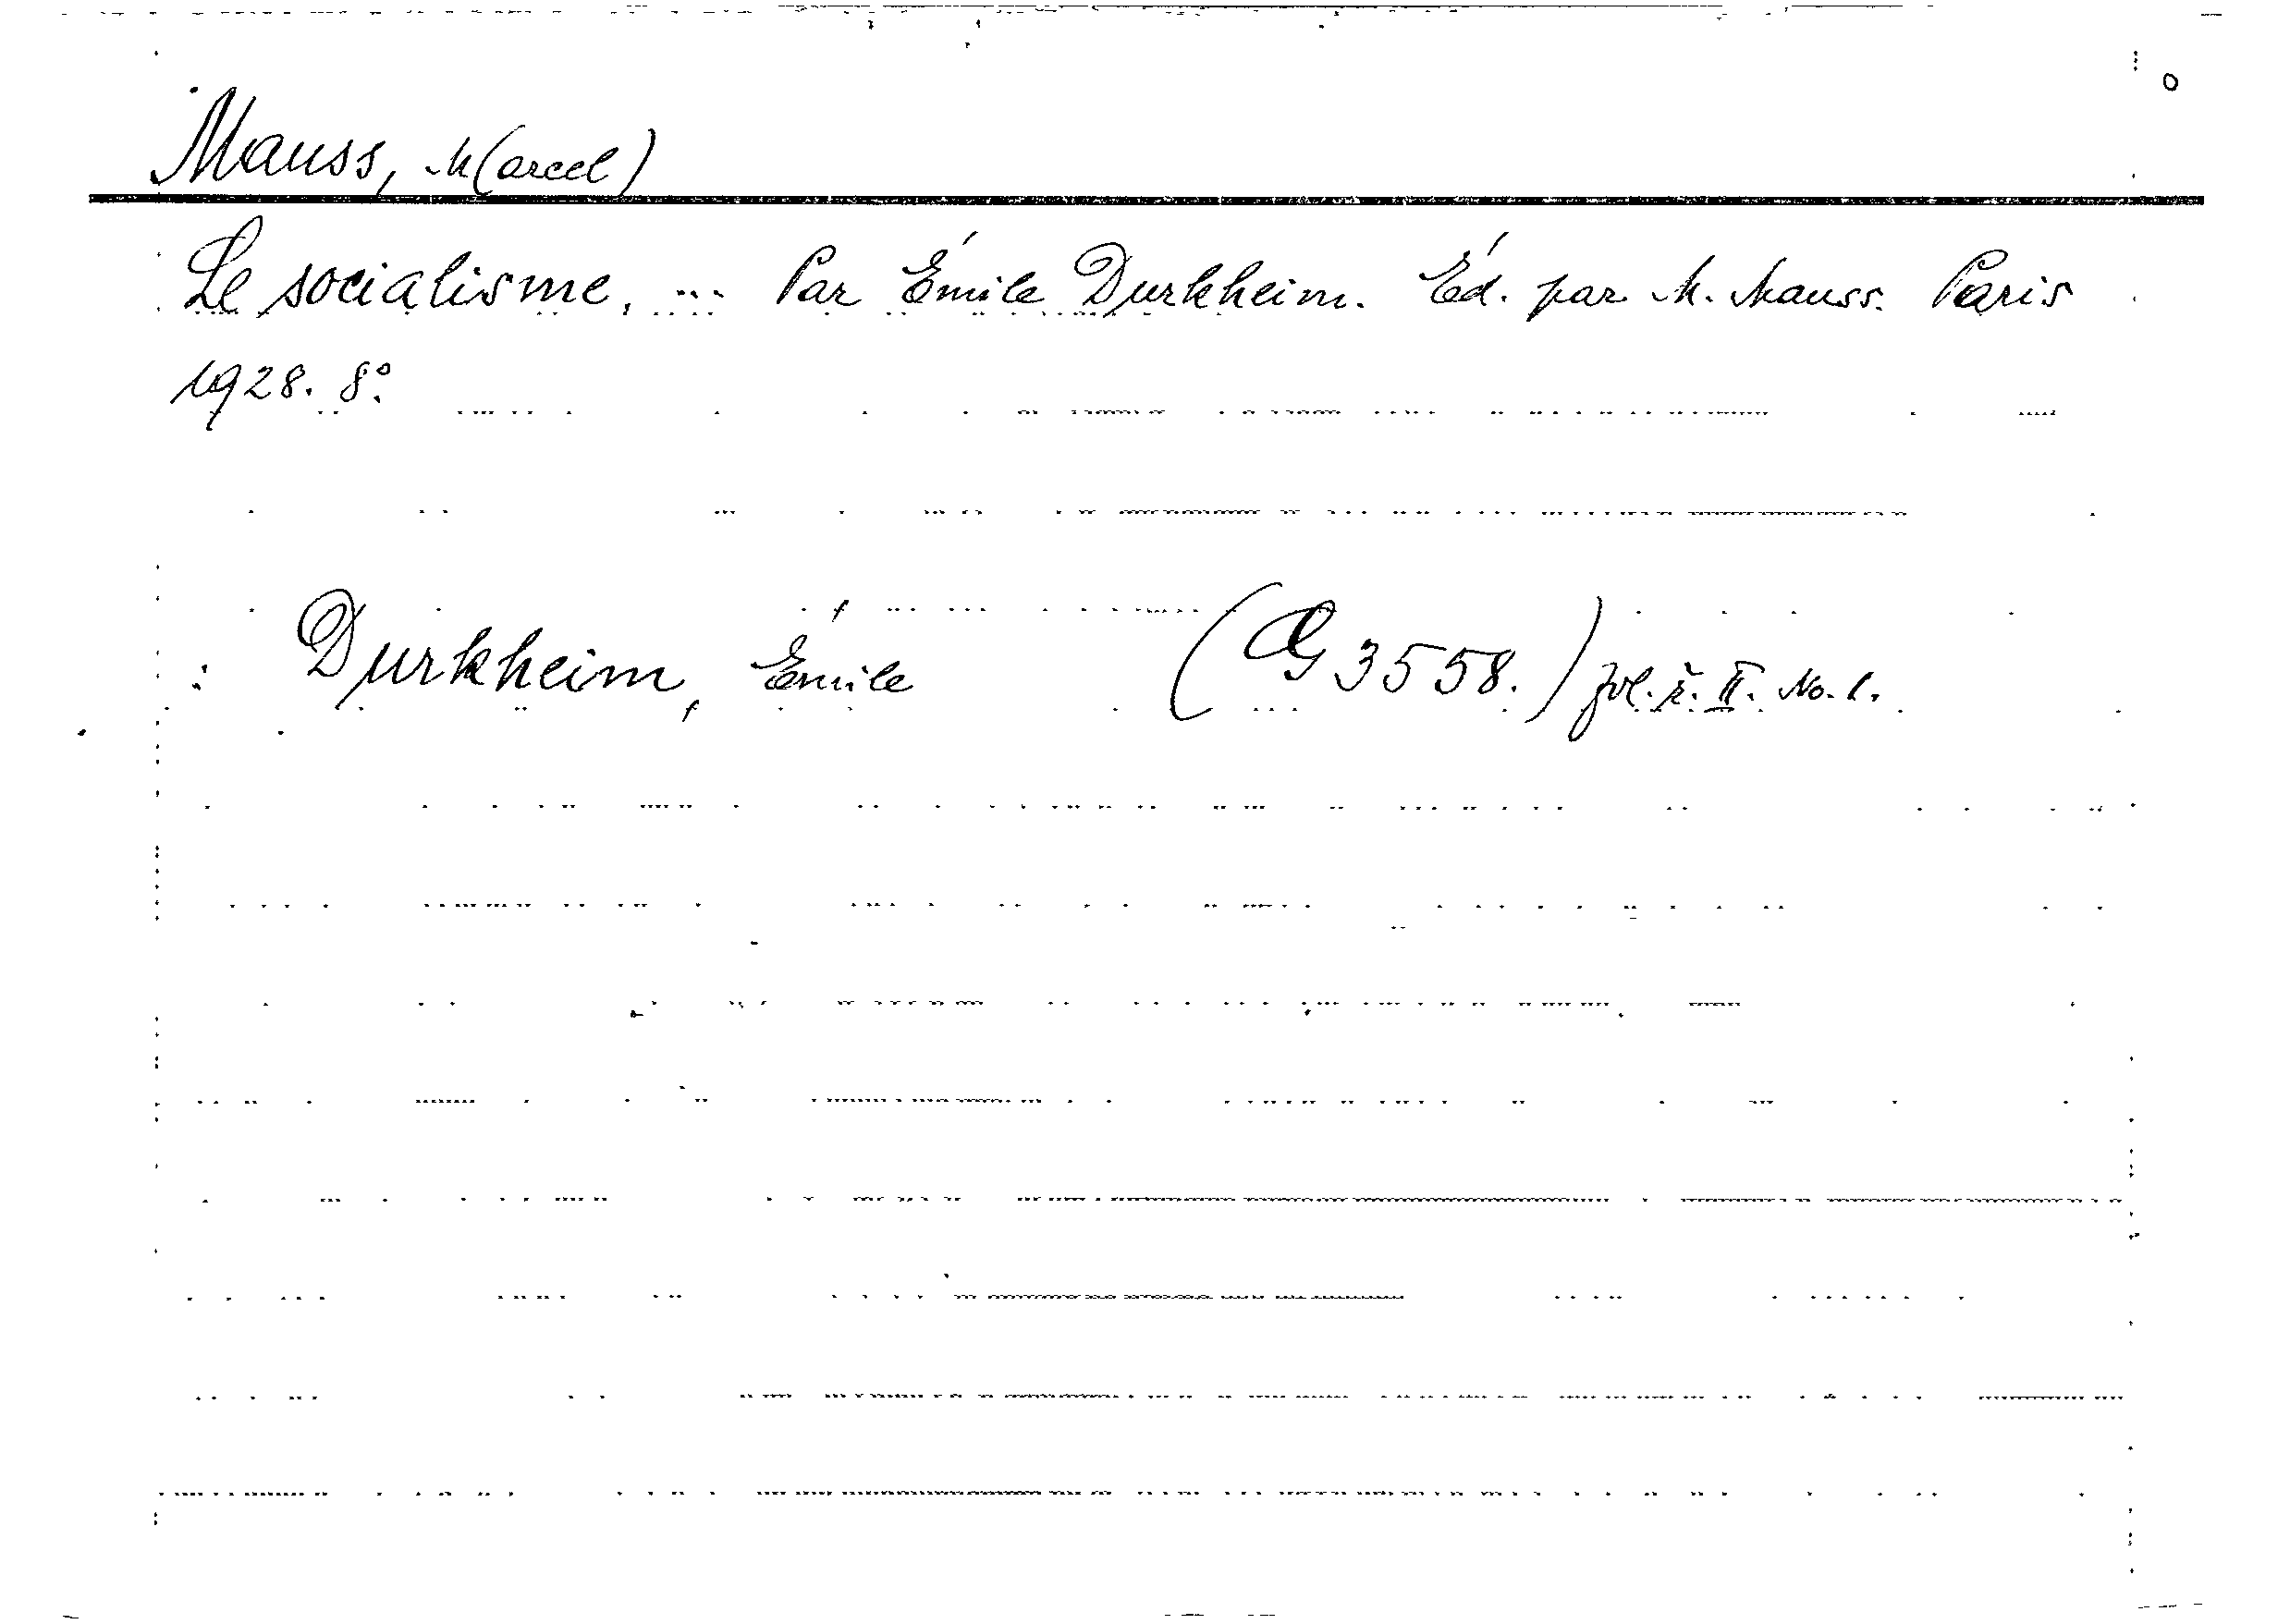 Mauss, M(arcel)
Le socialisme. ... Par Émile Durkheim. Éd. par M. Mauss. Paris
1928. 8°.
: Durkheim, Émile (G 3558.) zvl. ř. II. No. 1.